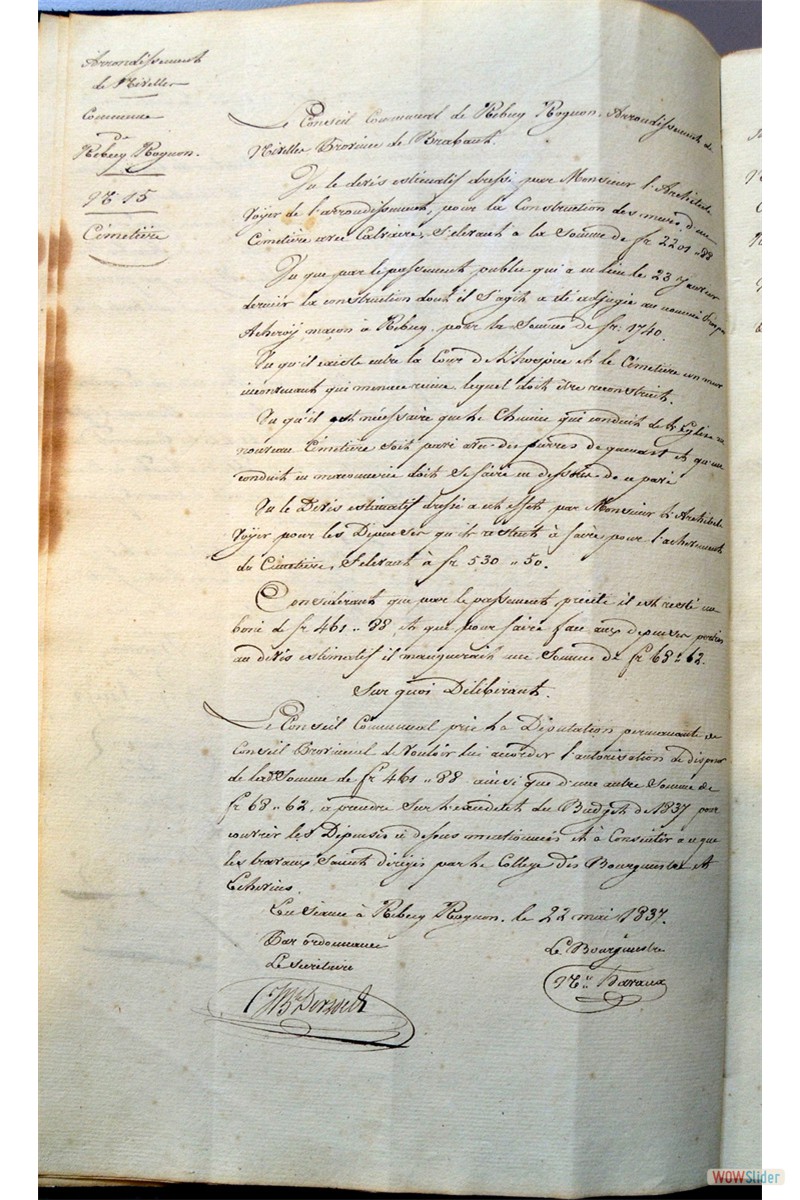 Arrondissement
de Nivelles
Commune
de
Rebecq Rognon.
N° 15
Cimetière
Le Conseil Communal de Rebecq Rognon, Arrondissement de
Nivelles Province de Brabant.
Vu le devis estimatif dressé par Monsieur l'Architecte
Voyer de l'arrondissement, pour la Construction des murs d'un
Cimetière avec Calvaire, S'élevant à la Somme de fr 2201 ,, 88
Vu que par le passement public qui a eu lieu le 23 Janvier
dernier la construction dont il S'agit a été adjugée au nommé
maçon à Rebecq, pour la Somme de fr: 1740.
Vu qu'il existe entre la Cour de l'hospice et le Cimetière un mur
qui menace ruine lequel doit être reconstruit.
Vu qu'il est nécessaire que le Chemin qui conduit de l'Eglise au
nouveau Cimetière soit pavé avec des pierres de et qu'un
conduit en maçonnerie doit Se faire en dessous de ce pavé
Vu le Devis estimatif dressé a cet effet par Monsieur l'Architecte
Voyer pour les Dépenses qu'il restent à faire pour l'achevement
du Cimetière, S'élevant à fr 530 ,, 50.
Considérant que par le passement précité il est resté un
boni de fr 461 ,, 88, et que pour faire face aux dépenses portées
au devis estimatif il manquerait une Somme de fr 68 ,, 62.
Sur quoi Délibérant.
Le Conseil Communal prie la Députation permanante du
Conseil Provincial de Vouloir lui accorder l'autorisation de disposer
de la de Somme de fr 461 ,, 88 ainsi que d'une autre Somme de
fr 68 ,, 62, a prendre Sur l'excédent du Budget de 1837 pour
couvrir les Dépenses ci dessus mentionnées et à Consentir a ce que
les travaux Soient dirigés par le College des Bourgmestre et
Echevins.
En Séance à Rebecq Rognon, le 22 mai 1837.
Par ordonnance
Le Secrétaire
Le Bourgmestre
WOWSlider